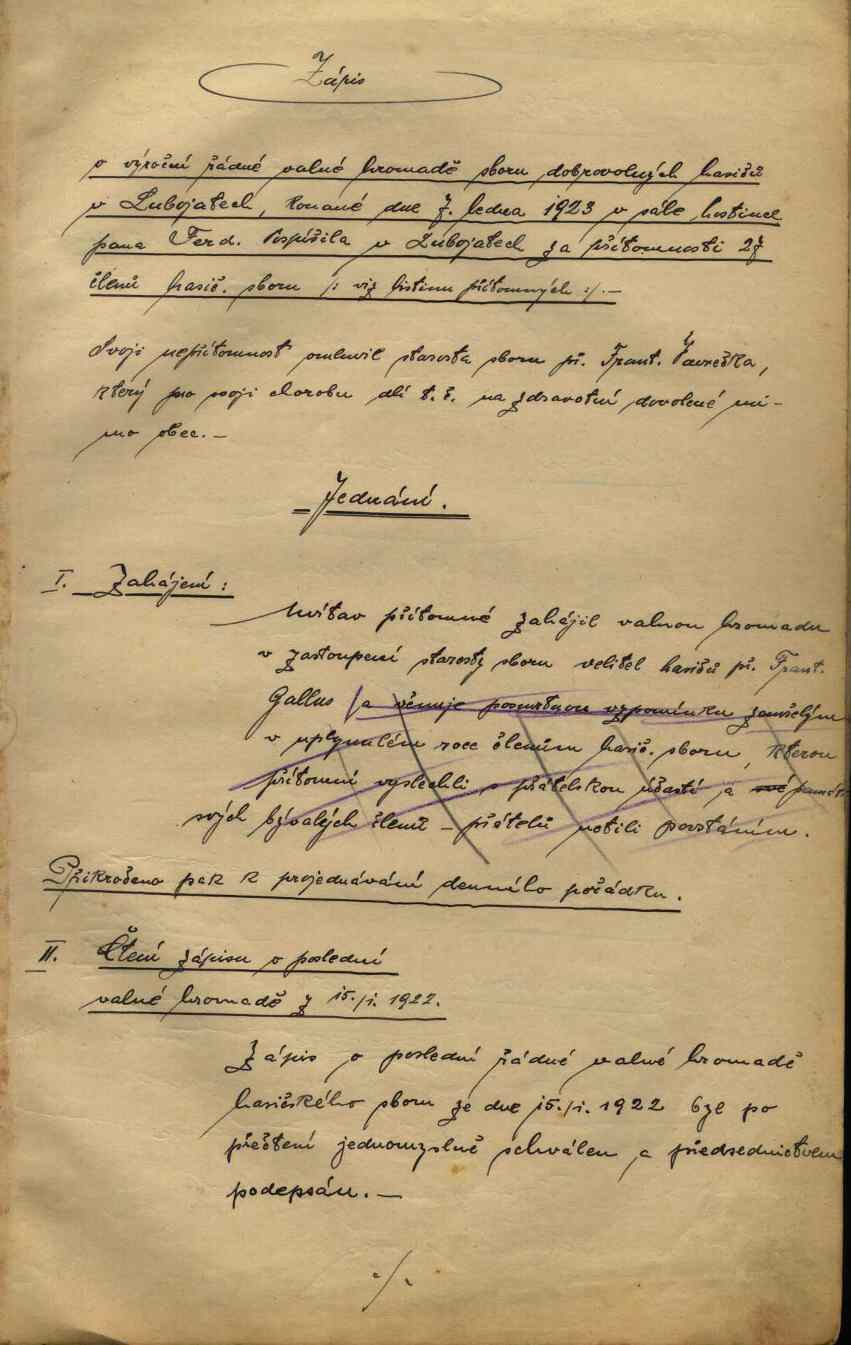 Zápis
o výroční řádné valné hromadě sboru dobrovolných hasičů
v Lubojatech, konané dne 7. ledna 1923 v sále hostince
pana Ferd. Pospíšila v Lubojatech za přítomnosti 27
členů hasič. sboru /: viz listinu přítomných :/. —
Svoji nepřítomnost omluvil starosta sboru př. Frant.
který pro svoji chorobu dlí t. č. na zdravotní dovolené mi-
mo obec. —
Jednání.
I. Zahájení :
Uvítav přítomné zahájil valnou hromadu
v zastoupení starosty sboru velitel hasičů př. Frant.
Gallus /a věnuje posmrtnou vzpomínku zemřelým
v uplynulém roce členům hasič. sboru, kterou
přítomní vyslechli s přátelskou účastí a své památ
svých bývalých členů – přátelů uctili povstáním.
Přikročeno pak k projednávání denního pořádku.
II. Čtení zápisu o poslední
valné hromadě z 15./1. 1922.
Zápis o poslední řádné valné hromadě
hasičského sboru ze dne 15./1. 1922 byl po
přečtení jednomyslně schválen a předsednictvem
podepsán. —
·/.